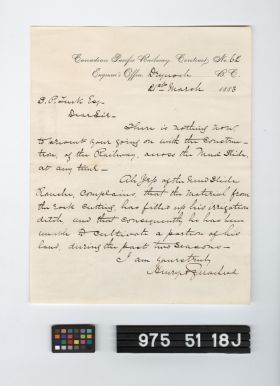 Canadian Pacific Railway, Contract, No. 62
Engineer's Office, Drynoch B.C.
21st March 1883
Esq.
Dear Sir -
There is nothing now
to prevent your going on with the Construc-
tion, of the Railway, across the Mud Slide,
at any time -
of the Mud Slide
Ranche, complains, that the Material from
the rock cutting, has filled up his irrigation
ditch, and that consequently he has been
unable to cultivate a portion of his
land, during the past two seasons -
I am Yours truly
Henry
975 51 18J